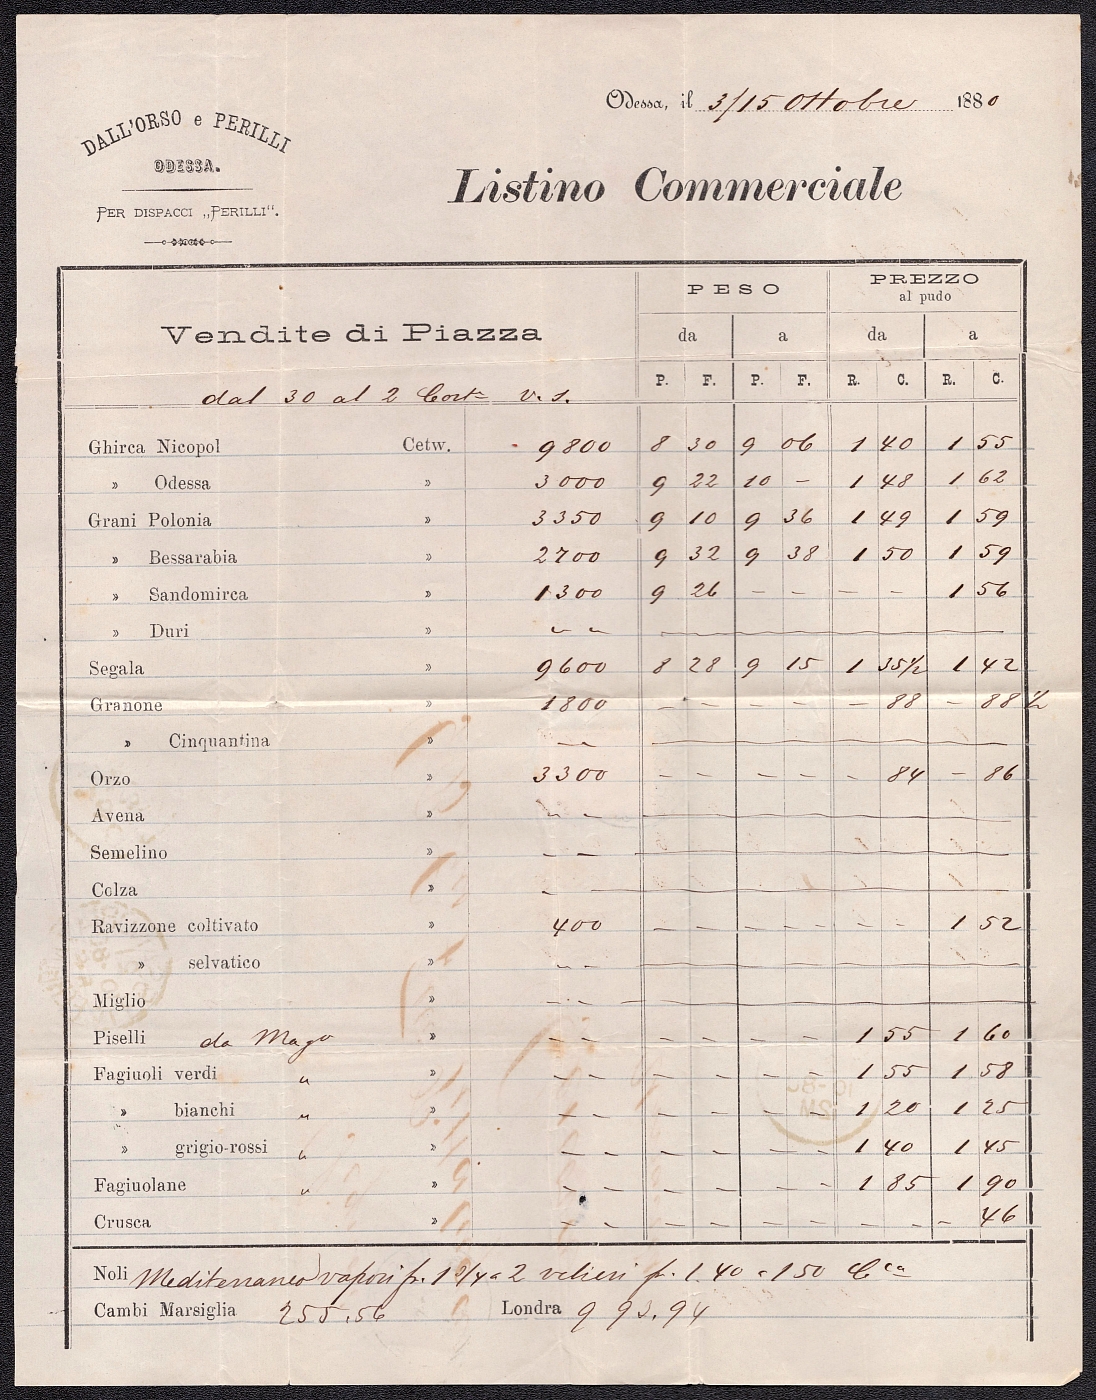 Odessa, il 3/15 Ottobre 1880
DALL'ORSO e PERILLI
ODESSA.
PER DISPACCI „PERILLI“.
Listino Commerciale
Vendite di Piazza
dal 30 al 2 Cort.e v. s.
PESO
PREZZO
al pudo
da a da a
P. F. P. F. R. C. R. C.
Ghirca Nicopol Cetw. 9800 8 30 9 06 1 40 1 55
» Odessa » 3000 9 22 10 – 1 48 1 62
Grani Polonia » 3350 9 10 9 36 1 49 1 59
» Bessarabia » 2700 9 32 9 38 1 50 1 59
» Sandomirca » 1300 9 26 – – – – 1 56
» Duri » – –
Segala » 9600 8 28 9 15 1 35½ 1 42
Granone » 1800 – – – – – 88 – 88½
» Cinquantina » – –
Orzo » 3300 – – – – – 84 – 86
Avena » – –
Semelino » – –
Colza » –
Ravizzone coltivato » 400 – – – – – – 1 52
» selvatico » – –
Miglio » – –
Piselli da Mago » – – – – – – 1 55 1 60
Fagiuoli verdi " » – – – – – – 1 55 1 58
» bianchi " » – – – – – – 1 20 1 25
» grigio-rossi " » – – – – – – 1 40 1 45
Fagiuolane " » – – – – – – 1 85 1 90
Crusca » – – – – – – – – – 46
Noli Mediterraneo vapori fr. 1 3/4 a 2 velieri fr. 1.40 a 1.50 Cca
Cambi Marsiglia 255.56 Londra 9 93.94